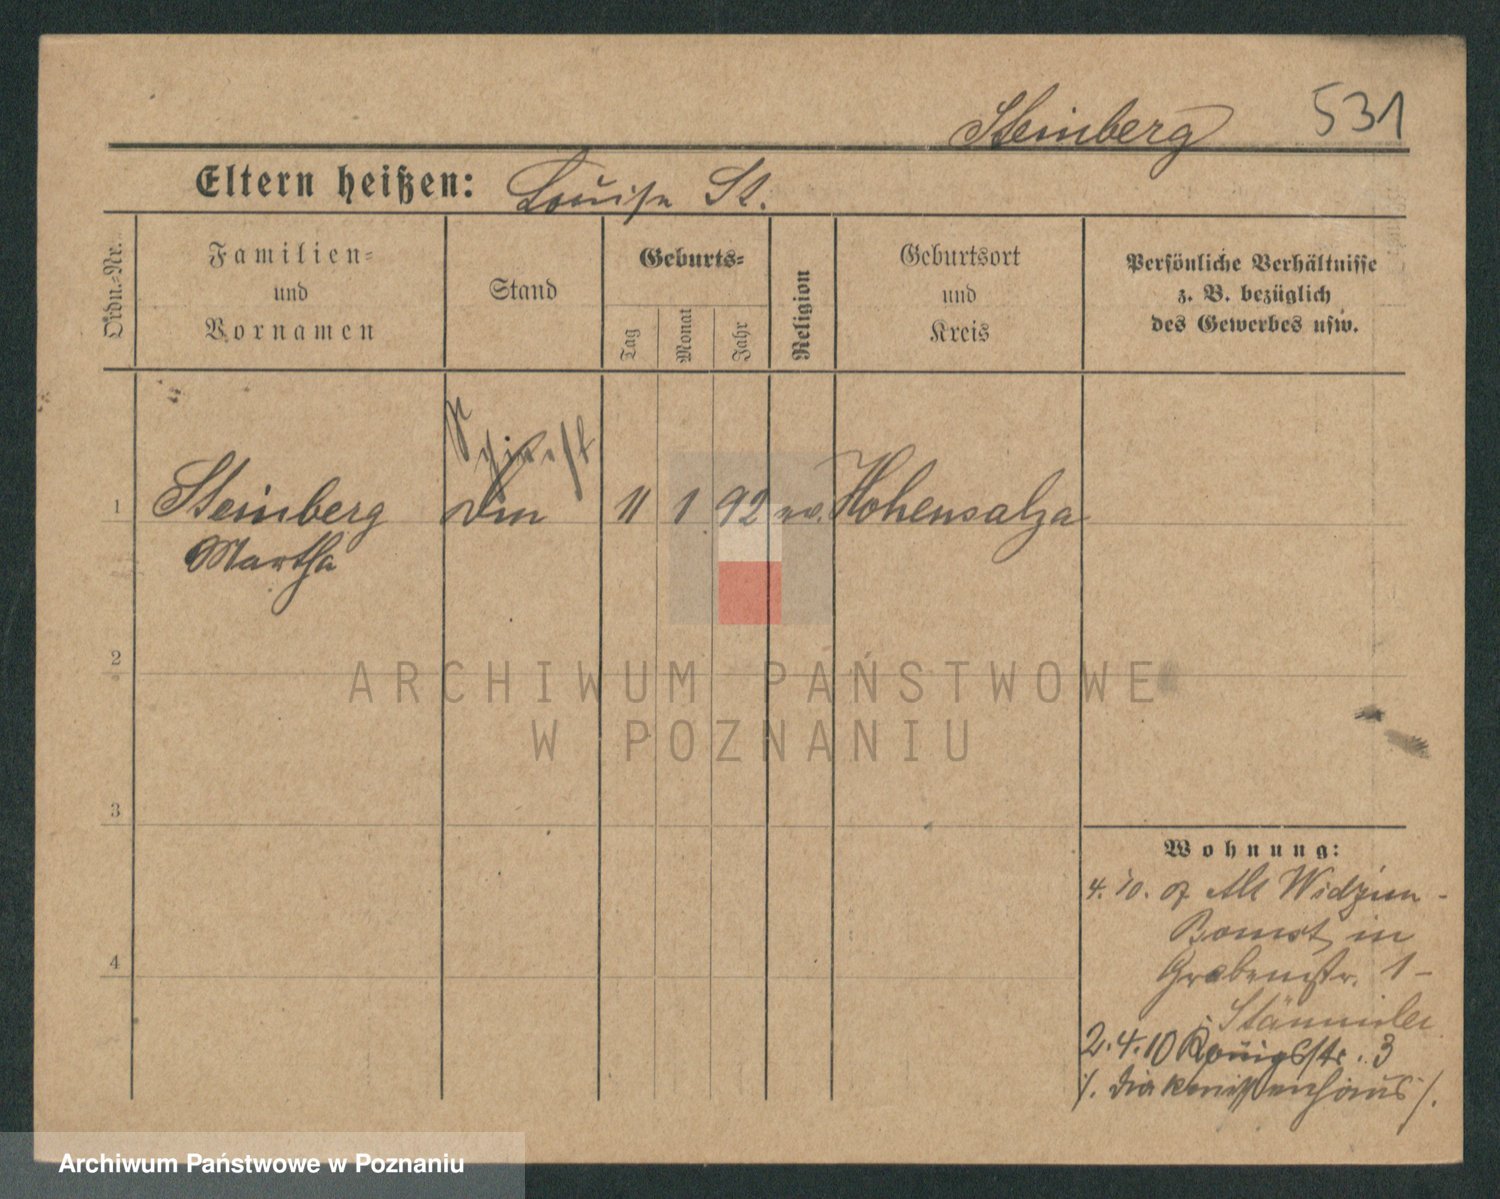 Steinberg 531
Eltern heißen: Louise St.
Ordn.-Nr.
Familien-
und
Vornamen
Stand
Geburts-
Tag
Monat
Jahr
Religion
Geburtsort
und
Kreis
Persönliche Verhältnisse
z. B. bezüglich
des Gewerbes usw.
1 Steinberg 11 1 92 ev. Hohensalza
Martha
2
3
4
ARCHIWUM PAŃSTWOWE
W POZNANIU
Wohnung:
4. 10. 07 Alt Widzim -
Bomst in
Grabenstr. 1 -
2.4.10 Königsstr. 3
/. Diakonissenhaus /.
Archiwum Państwowe w Poznaniu